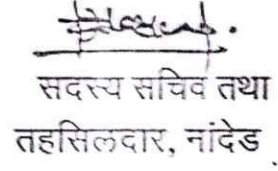 सदस्य सचिव तथा
तहसिलदार, नांदेड